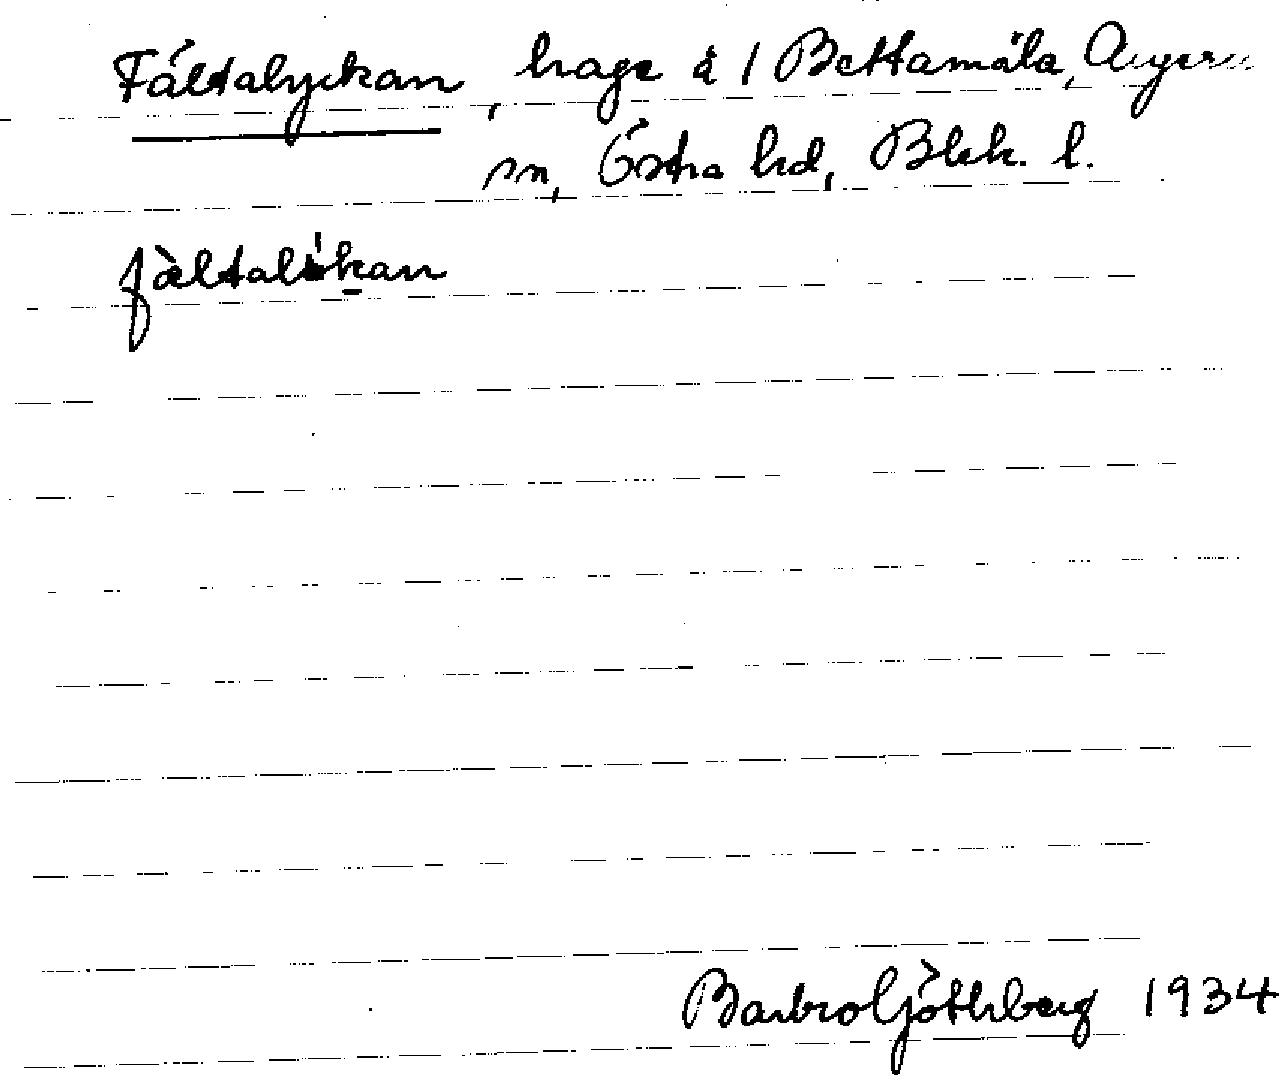 Fältalyckan, hage å 1 Bettamåla, Augerums
sn, Östra hd, Blek. l.
fàltalikan
Barbro Göthberg 1934